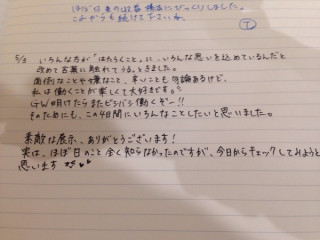 ほぼ日の
にびっくりしました。
これからも続けて下さいね。
T
5/3 いろんな方が"はたらくこと"に、いろんな思いを込めているんだと
改めて言葉に触れてうるっときました。
面倒なことや嫌なこと、辛いことも勿論あるけど、
私は働くことが楽しくて大好きです。
GW明けたらまたビシバシ働くぞー!!
そのためにも、この4日間にいろんなことしたいと思いました。
素敵な展示、ありがとうございます!
実は、ほぼ日のこと全く知らなかったのですが、今日からチェックしてみようと
思います